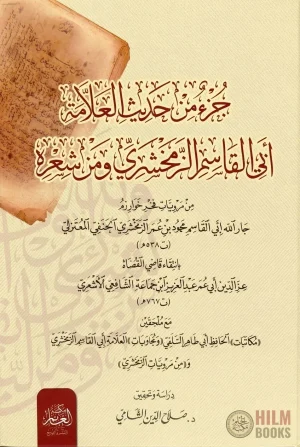 جُزْءٌ مِنْ حَدِيثِ العَلَّامَةِ
أَبِي القَاسِمِ الزَّمَخْشَرِيِّ وَمِنْ شِعْرِهِ
مِنْ مَرْوِيَّاتِ فَخْرِ خَوَارِزْمَ
جَارِ اللهِ أَبِي القَاسِمِ مَحْمُودِ بْنِ عُمَرَ الزَّمَخْشَرِيِّ الحَنَفِيِّ المُعْتَزِلِيِّ
(ت ٥٣٨هـ)
بِانْتِقَاءِ قَاضِي القُضَاةِ
عِزِّ الدِّينِ أَبِي عُمَرَ عَبْدِ العَزِيزِ ابْنِ جَمَاعَةَ الشَّافِعِيِّ الأَشْعَرِيِّ
(ت ٧٦٧هـ)
مَعَ مُلْحَقَيْنِ
«مُكَاتَبَاتُ الحَافِظِ أَبِي طَاهِرٍ السِّلَفِيِّ وَمُجَاوَبَاتُ العَلَّامَةِ أَبِي القَاسِمِ الزَّمَخْشَرِيِّ
وَ«مِنْ مَرْوِيَّاتِ الزَّمَخْشَرِيِّ»
دِرَاسَة وَتَحْقِيق
د. صَلَاحُ الدِّينِ الشَّامِي
HILM
BOOKS